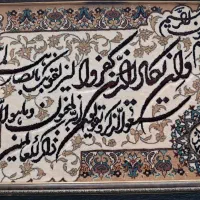 وان یکاد الذین کفروا لیزلقونک بابصارهم
لما سمعوا الذکر و یقولون انه لمجنون و ما هو الا
ذکر للعالمین